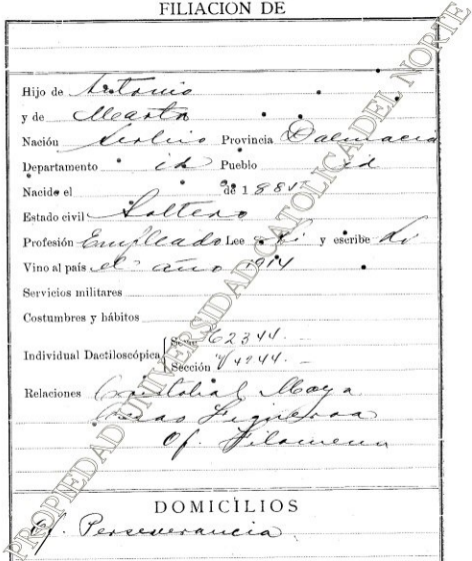 FILIACION DE
Hijo de Antonio
y de Marta
Nación Servio Provincia Dalmacia
Departamento id Pueblo id
Nacido el de 188
Estado civil Soltero
Profesión Empleado Lee si y escribe si
Vino al país el año 1914
Servicios militares
Costumbres y hábitos
Individual Dactiloscópica Serie 62344.-
Sección 4244.-
Relaciones Cristobal Moya
Figueroa
Of. Filomena
DOMICILIOS
Of. Perseverancia
PROPIEDAD UNIVERSIDAD CATOLICA DEL NORTE